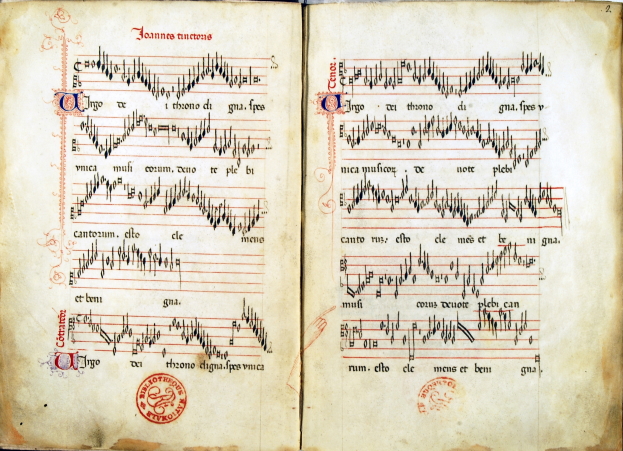 Joannes tinctoris
Virgo de i throno di gna. spes
vnica musi corum. deuo te ple bi
cantorum. esto cle mens
et beni gna.
Cōtratēor
Virgo dei throno digna. spes vnica
2.
Tenor.
Virgo dei throno di gna. spes v
nica musicoꝝ. de uote plebi
canto rum. esto cle mēs et be ni gna.
musi corum deuote plebi can
rum. esto cle mens et beni gna.
BIBLIOTHEQUE NATIONALE